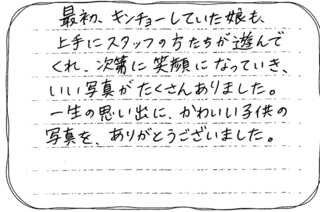 最初、キンチョーしていた娘も、
上手にスタッフの方たちが遊んで
くれ、次第に笑顔になっていき、
いい写真がたくさんありました。
一生の思い出に、かわいい子供の
写真を、ありがとうございました。